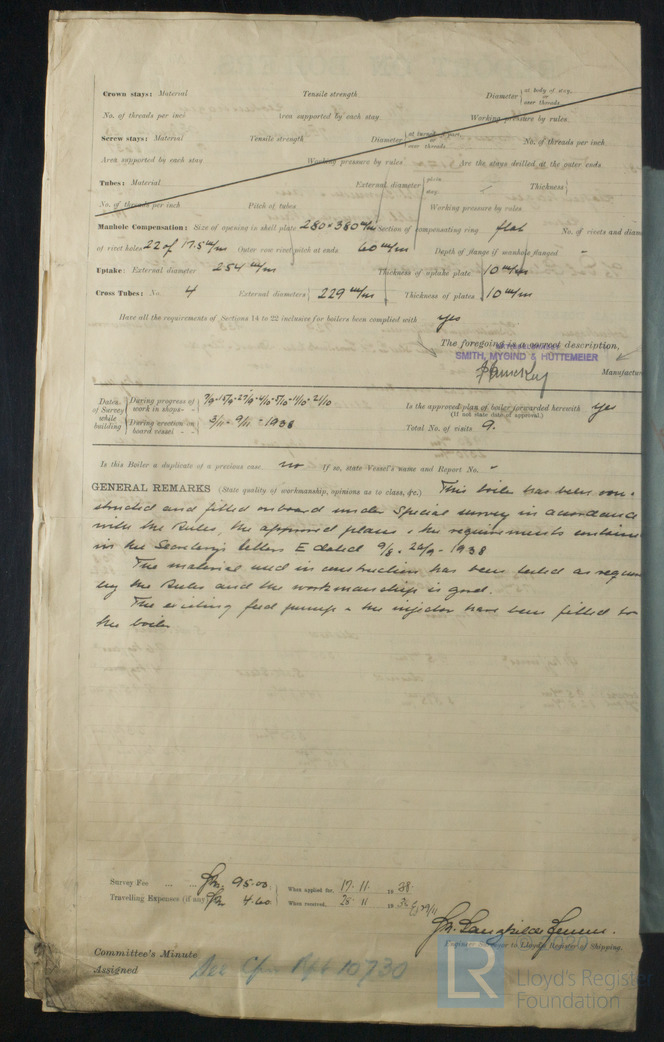 Crown stays: Material Tensile strength Diameter at body of stay, or over threads
No. of threads per inch Area supported by each stay Working pressure by rules
Screw stays: Material Tensile strength Diameter at turned off part, or over threads No. of threads per inch
Area supported by each stay Working pressure by rules Are the stays drilled at the outer ends
Tubes: Material External diameter plain stay Thickness
No. of threads per inch Pitch of tubes Working pressure by rules
Manhole Compensation: Size of opening in shell plate 280 × 380 m/m Section of compensating ring flat No. of rivets and diam
of rivet holes 22 of 17.5 m/m Outer row rivet pitch at ends 60 m/m Depth of flange if manhole flanged -
Uptake: External diameter 254 m/m Thickness of uptake plate 10 m/m
Cross Tubes: No. 4 External diameters 229 m/m Thickness of plates 10 m/m
Have all the requirements of Sections 14 to 22 inclusive for boilers been complied with yes
The foregoing is a correct description,
SMITH, MYGIND & HÜTTEMEIER
Manufactur
Dates of Survey while building
During progress of work in shops - -
During erection on board vessel - -
3/11 - 9/11 - 1938
Is the approved plan of boiler forwarded herewith yes
(If not state date of approval.)
Total No. of visits 9.
Is this Boiler a duplicate of a previous case no If so, state Vessel's name and Report No. -
GENERAL REMARKS (State quality of workmanship, opinions as to class, &c.) This boiler has been con-
structed and fitted onboard under Special survey in accordance
with the Rules, the approved plans & the requirements contained
in the Secretary's letters E dated 9/8 - 26/9 - 1938
The material used in construction has been tested as requir
by the Rules and the workmanship is good.
The existing feed pump & the injector have been fitted to
the boiler
Survey Fee ... ... Kr. 95.00 When applied for, 17. 11. 1938.
Travelling Expenses (if any) Kr. 4.60 When received, 28. 11 1938
Engineer Surveyor to Lloyd's Register of Shipping.
Committee's Minute
Assigned See Cpn Rpt 10730
© 2020
LR
Lloyd's Register
Foundation